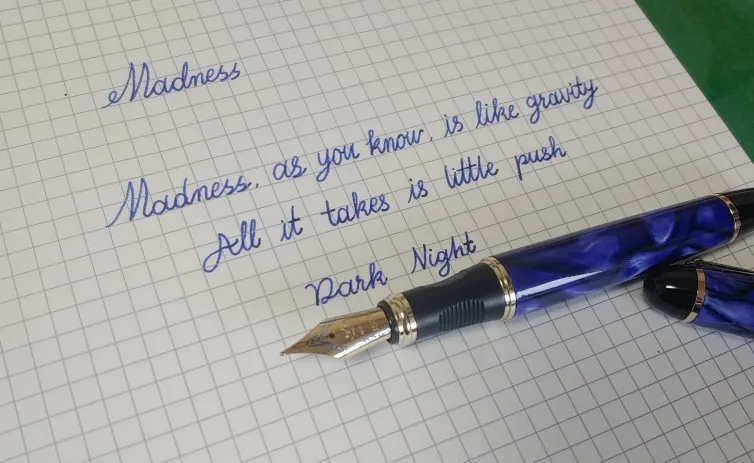 Madness
Madness, as you know, is like gravity
All it takes is little push
Dark Night